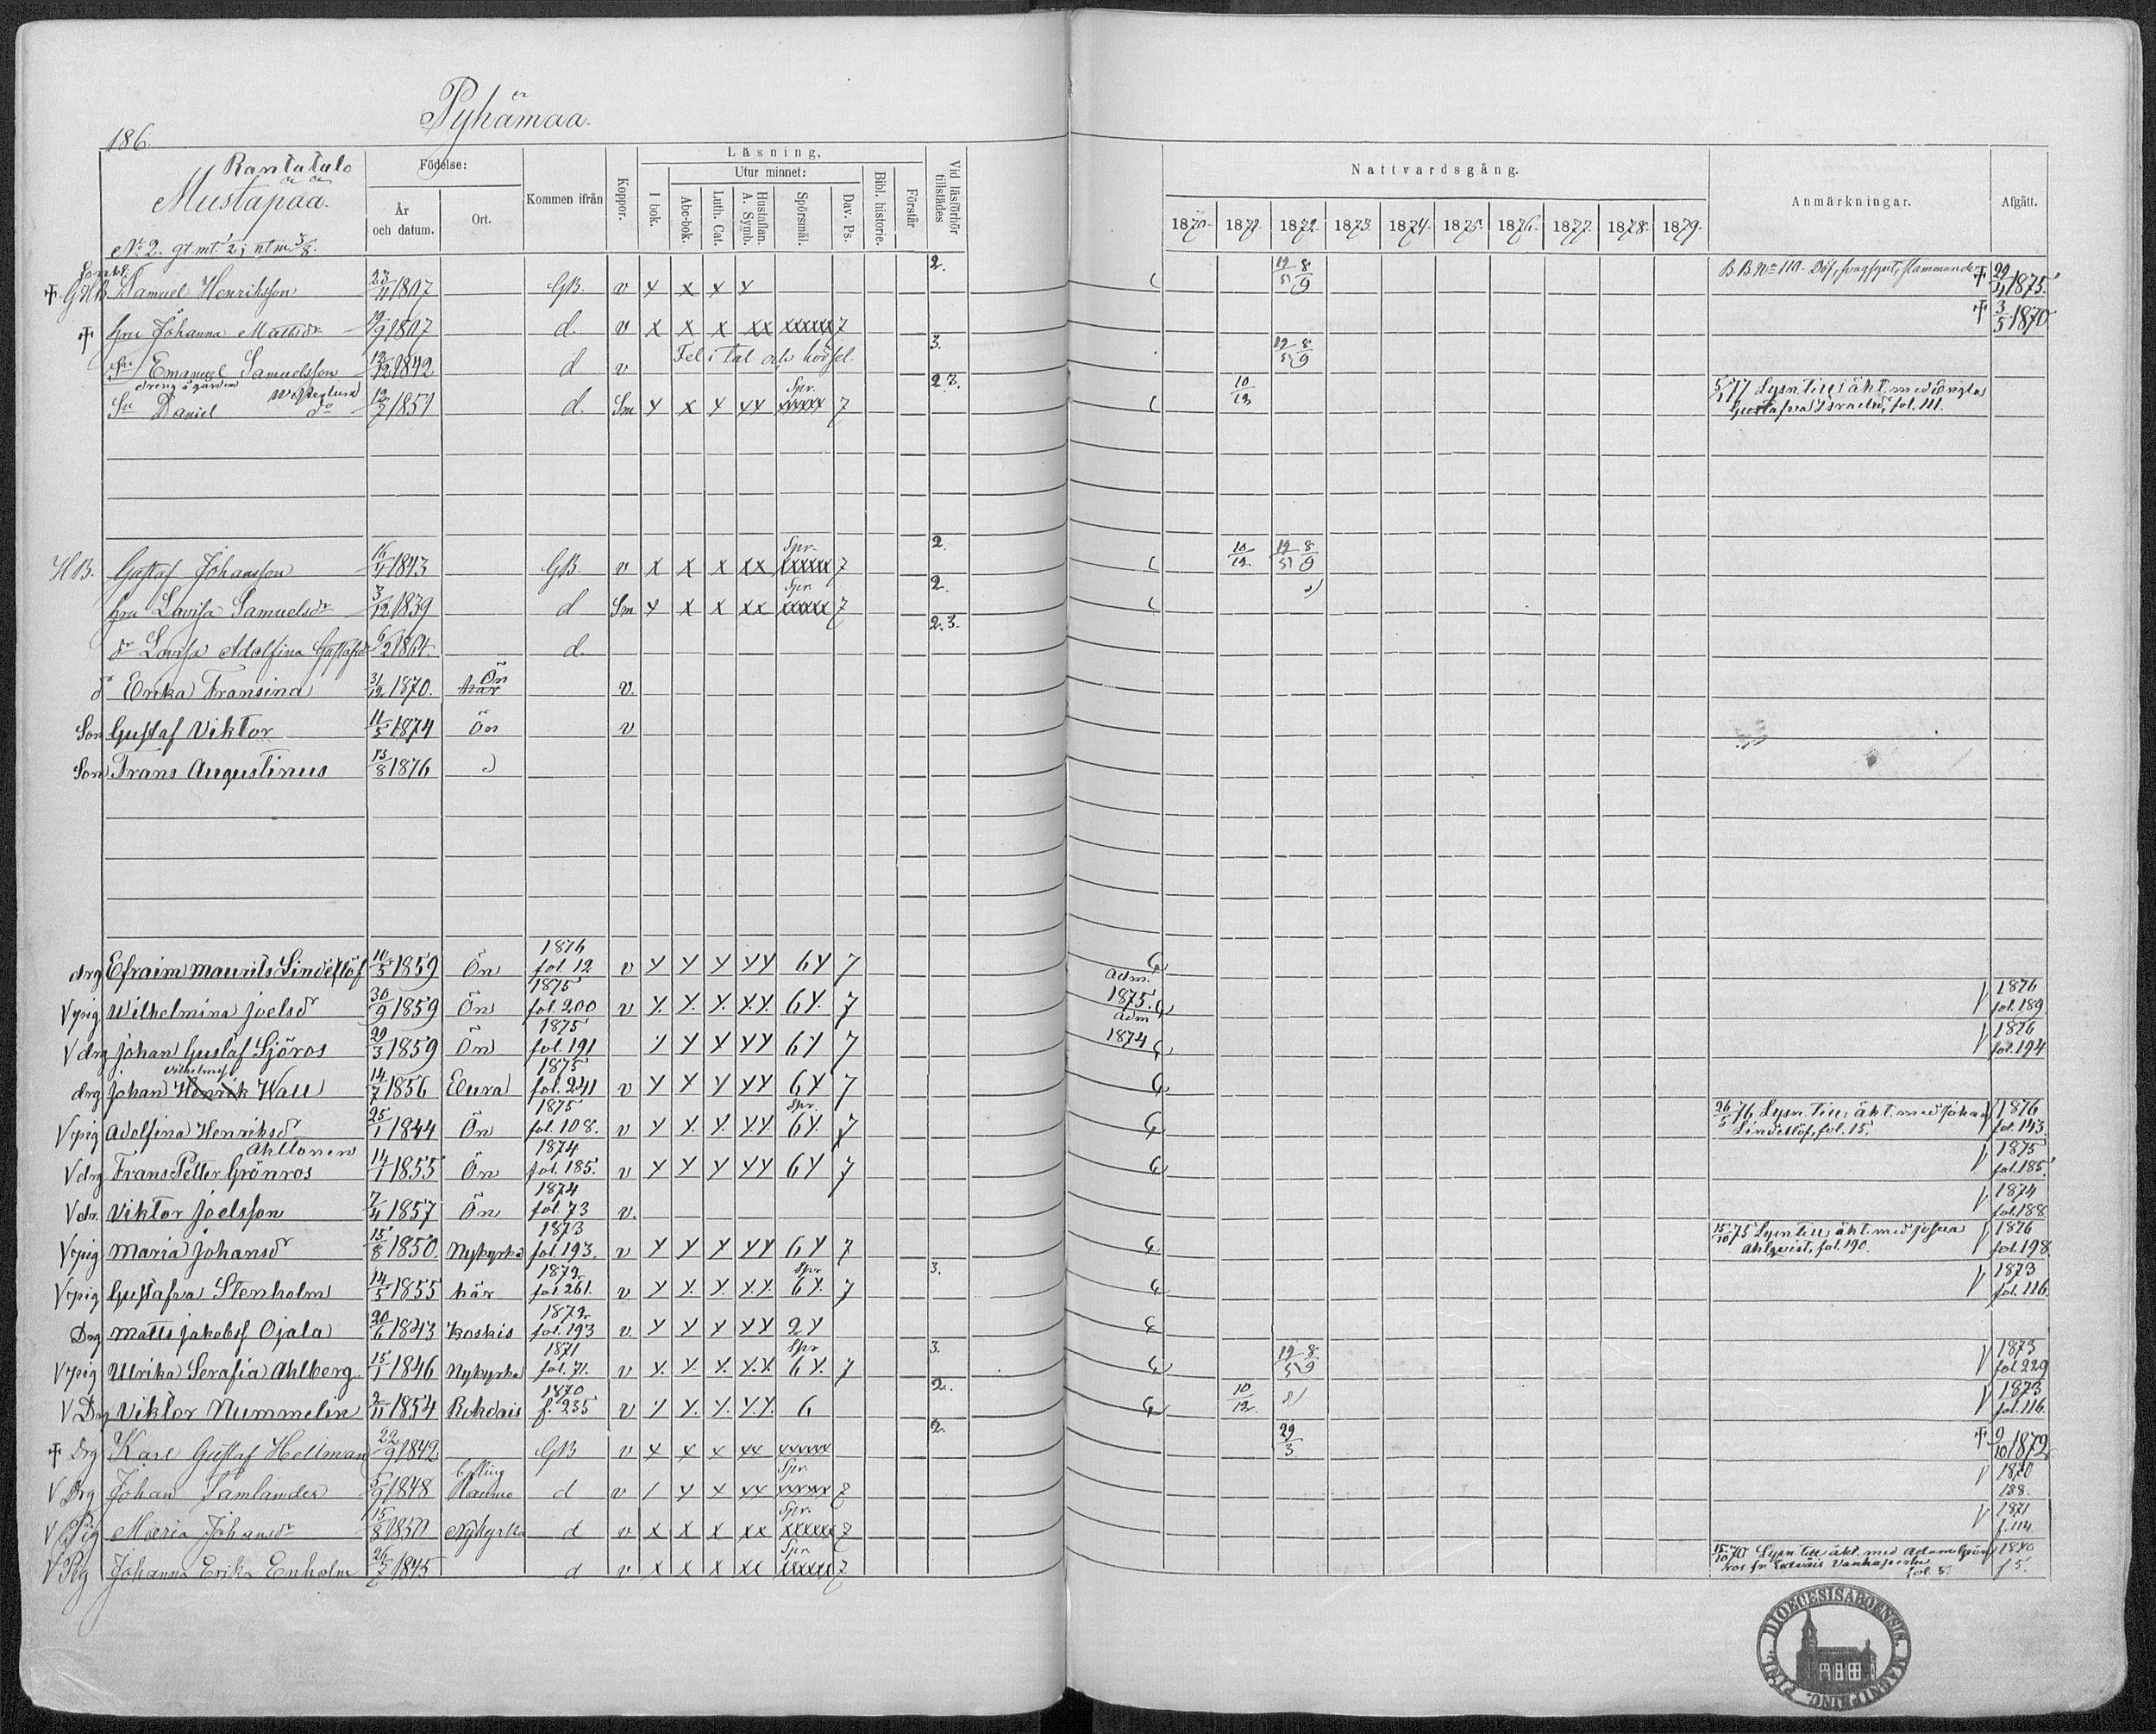 Pyhämaa.
186.
Rantatalo
Mustapää.
No 2. gt. mt. 1/2; nt m 3/8.
Födelse:
År och datum.
Ort.
Kommen ifrån
Koppor.
Läsning,
I bok.
Utur minnet:
Abc-bok.
Luth. Cat.
Hustaflan. A. Symb.
Spörsmål.
Dav. Ps.
Bibl. historie.
Förstår
Vid läsförhör tillstädes
Nattvardsgång.
1870. 1871. 1872. 1873. 1874. 1875. 1876. 1877. 1878. 1879.
Anmärkningar.
Afgått.
Samuel Henriksson 23/11 1807 GB. v x x x x 2. 19/51 8/9 B.B. No 110. Döf, svagsynt, stammande ✝ 29/4 1875.
✝ hru Johanna Mattsdr 19/9 1807 d. v x x x xx xxxxxx 7 ✝ 3/5 1870
Sn Emanuel Samuelsson 12/12 1842 d v Fel i tal och hörsel. 3. 19/51 8/9
dreng å gården Westerlund
Sn Daniel do 12/7 1851 d. Sm x x x xx Spr. xxxxx 7 2 3. 10/12 5/1 77 Lysn. till äkt. med
Gustafva Israelsd, fol. 111.
HB. Gustaf Johansson 16/4 1843 GB. v x x x xx Spr. xxxxxx 7 2. 10/12. 19/51 8/9
hru Lovisa Samuelsdr 3/12 1839 d Sm x x x xx Spr xxxxxx 7 2.
dr Lovisa Adolfina Gustafsdr 6/2 1864. d. 2. 3.
dr Erika Fransina 31/12 1870. här Ön v.
Son Gustaf Viktor 11/5 1874 Ön v
Son Frans Augustinus 13/8 1876
drg Efraim Maurits Lindellöf 10/5 1859 Ön 1876 fol. 12 v x x x xx 6x 7
V pig Wilhelmina Joelsd 30/9 1859 Ön 1875 fol. 200 v x x x xx 6x. 7 Adm. 1875. V 1876 fol. 189
V drg Johan Gustaf Sjöros 29/3 1859 Ön 1875 fol. 191 x x x xx 6x 7 Adm 1874 V 1876 fol. 194
drg Johan Henrik Vilhelm Wall 14/7 1856 Eura 1875 fol. 241 v x x x xx 6x 7
V pig Adelfina Henriksd 25/1 1844 Ön 1875 fol. 108. v x x x xx Spr. 6x 7 26/5 76 Lysn. till äkt. med Johan V 1876 fol. 143.
Lindellöf, fol. 15.
Ahltonen
V drg Frans Petter Grönros 14/1 1855 Ön 1874 fol. 185. v x x x xx 6x 7 V 1875 fol. 185
V dr. Viktor Joelsson 7/4 1857 Ön 1874 fol. 73 v. V 1874 fol. 188
V pig Maria Johansd 15/8 1850. Nykyrka 1873 fol. 193. v x x x xx 6x 7 15/10 75 Lysn. till äkt. med Josua V 1876 fol. 198
Ahlqvist, fol. 190.
V pig Gustafva Stenholm 14/5 1855 här 1872 fol. 261. v x x x xx Spr 6x. 7 3. V 1873 fol. 116.
Drg Matts Jakobsf Ojala 20/6 1843 Koskis 1872 fol. 193 v. x x x xx 2x
V pig Ulrika Serafia Ahlberg. 15/1 1846 Nykyrka 1871 fol. 71. v x x x xx Spr 6x. 7 3. 19/51 8/9 V 1873 fol. 229
V Drg Viktor Nummelin 2/11 1854 Rohdais 1870 f. 235 v x x x xx 6 2. 10/12. V 1873 fol. 116.
✝ Drg Karl Gustaf Hellman 22/9 1842 GB v x x x xx xxxxxx 2. 29/3 ✝ 9/10 1872
V Drg Johan Samlander 5/9 1848 Raumo d v / x x xx Spr. xxxxx 7 V 1870 188.
V Pig Maria Johansdr 15/8 1850 Nykyrka d v x x x xx Spr. xxxxxx 7 V 1871 f. 114
V Pig Johanna Erika Enholm 26/7 1845 d v x x x xx Spr xxxxxx 7 15/10 70 Lysn till äkt. med Adam Grön- 1870
ros fr Vanhapirtti fol. 5. f 5.
DIOECESIS ABOENSIS